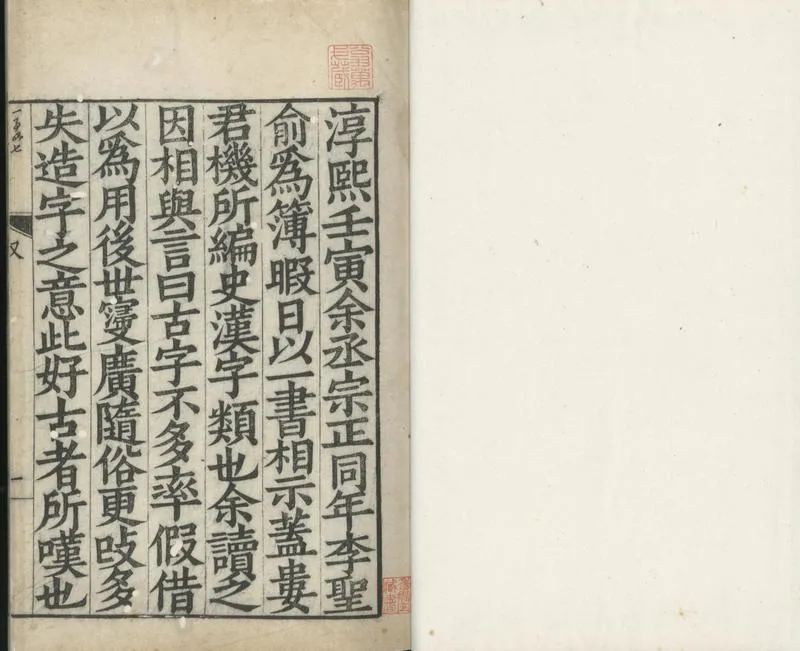 淳熙壬寅余丞宗正同年李聖
俞爲簿暇日以一書相示蓋婁
君機所編史漢字類也余讀之
因相與言曰古字不多率假借
以爲用後世寖廣隨俗更改多
失造字之意此好古者所嘆也
又
一